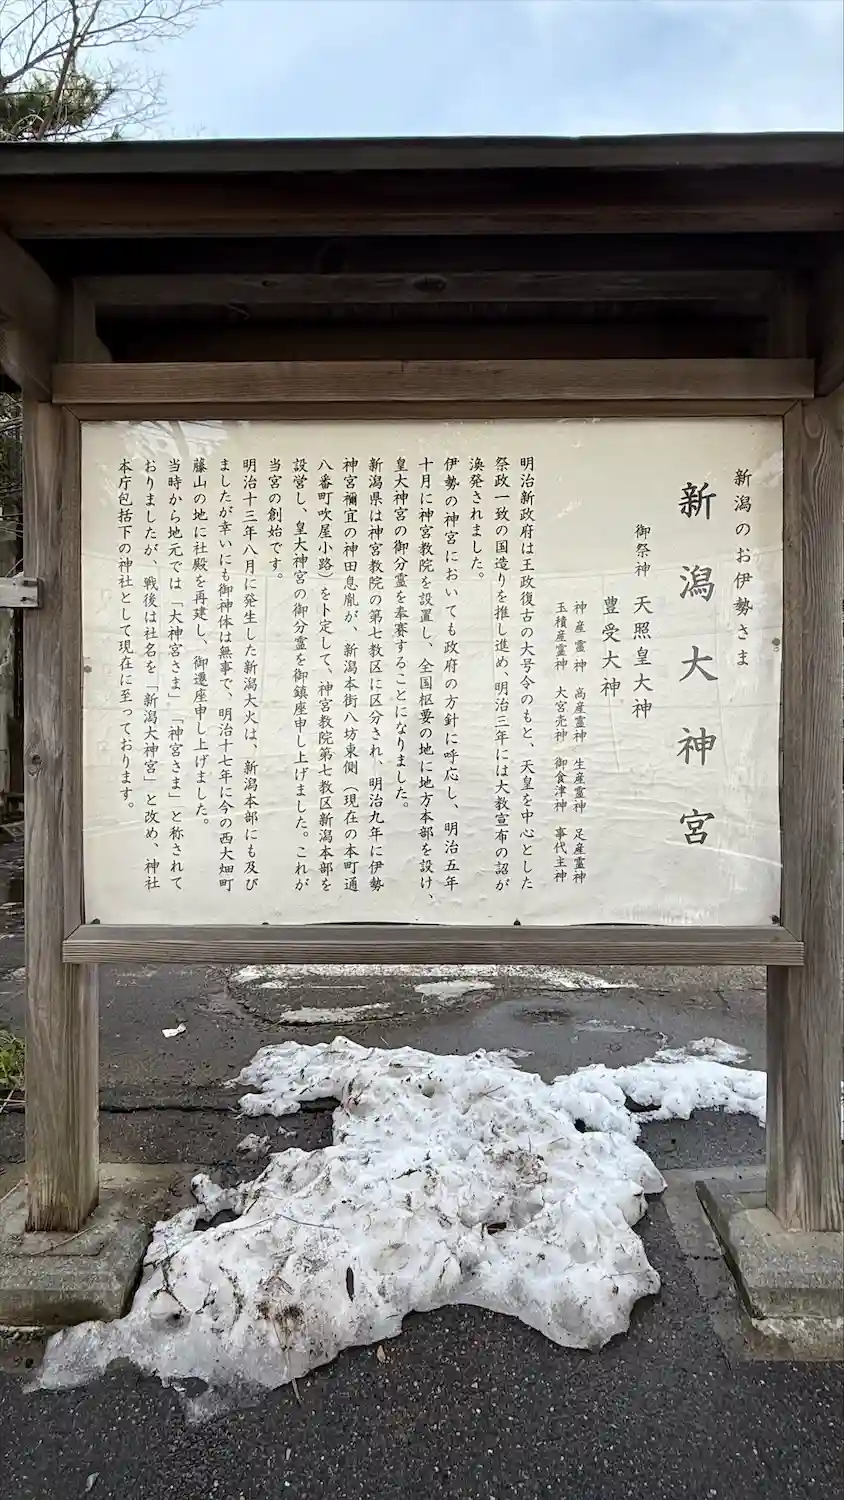 新潟のお伊勢さま
新潟大神宮
御祭神 天照皇大神
豊受大神
神産霊神 高産霊神 生産霊神 足産霊神
玉積産霊神 大宮売神 御食津神 事代主神
明治新政府は王政復古の大号令のもと、天皇を中心とした
祭政一致の国造りを推し進め、明治三年には大教宣布の詔が
渙発されました。
伊勢の神宮においても政府の方針に呼応し、明治五年
十月に神宮教院を設置し、全国枢要の地に地方本部を設け、
皇大神宮の御分霊を奉賽することになりました。
新潟県は神宮教院の第七教区に区分され、明治九年に伊勢
神宮禰宜の神田息胤が、新潟本街八坊東側（現在の本町通
八番町吹屋小路）を卜定して、神宮教院第七教区新潟本部を
設営し、皇大神宮の御分霊を御鎮座申し上げました。これが
当宮の創始です。
明治十三年八月に発生した新潟大火は、新潟本部にも及び
ましたが幸いにも御神体は無事で、明治十七年に今の西大畑町
藤山の地に社殿を再建し、御遷座申し上げました。
当時から地元では「大神宮さま」「神宮さま」と称されて
おりましたが、戦後は社名を「新潟大神宮」と改め、神社
本庁包括下の神社として現在に至っております。